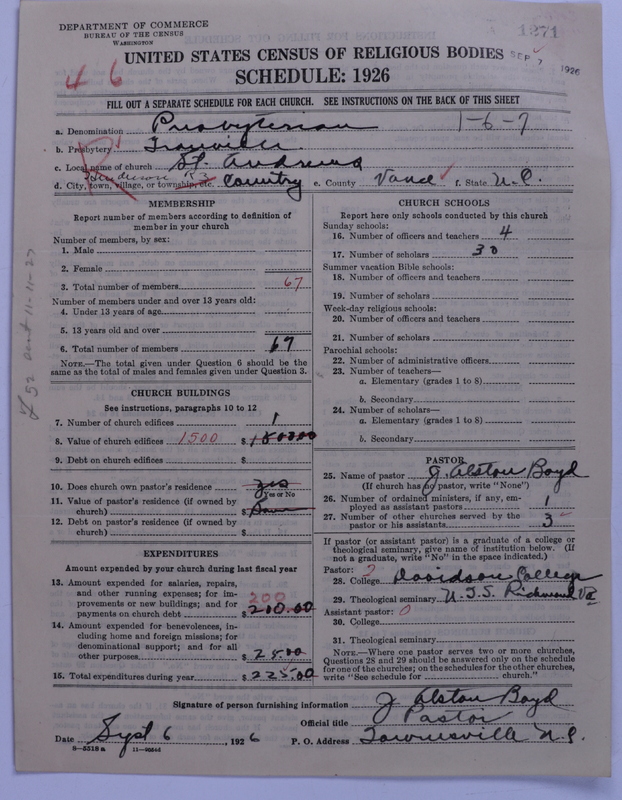 DEPARTMENT OF COMMERCE
BUREAU OF THE CENSUS
WASHINGTON
1271
UNITED STATES CENSUS OF RELIGIOUS BODIES
SEP 7 1926
4 6
SCHEDULE: 1926
FILL OUT A SEPARATE SCHEDULE FOR EACH CHURCH. SEE INSTRUCTIONS ON THE BACK OF THIS SHEET
a. Denomination Presbyterian 1-6-7
b. Presbytery Granville
c. Local name of church St. Andrews
Henderson R 3
d. City, town, village, or township, etc. Country e. County Vance f. State N.C.
R
MEMBERSHIP
Report number of members according to definition of
member in your church
Number of members, by sex:
1. Male
2. Female
3. Total number of members 67
Number of members under and over 13 years old:
4. Under 13 years of age
5. 13 years old and over
6. Total number of members 67
NOTE.—The total given under Question 6 should be the
same as the total of males and females given under Question 3.
CHURCH BUILDINGS
See instructions, paragraphs 10 to 12
7. Number of church edifices 1
8. Value of church edifices 1500 $
9. Debt on church edifices $
10. Does church own pastor's residence yes
Yes or No
11. Value of pastor's residence (if owned by
church) $
12. Debt on pastor's residence (if owned by
church) $
EXPENDITURES
Amount expended by your church during last fiscal year
13. Amount expended for salaries, repairs,
and other running expenses; for im-
provements or new buildings; and for 200
payments on church debt $ 200.00
14. Amount expended for benevolences, in-
cluding home and foreign missions; for
denominational support; and for all
other purposes $ 25.00
15. Total expenditures during year $ 225.00
CHURCH SCHOOLS
Report here only schools conducted by this church
Sunday schools:
16. Number of officers and teachers 4
17. Number of scholars 30
Summer vacation Bible schools:
18. Number of officers and teachers
19. Number of scholars
Week-day religious schools:
20. Number of officers and teachers
21. Number of scholars
Parochial schools:
22. Number of administrative officers
23. Number of teachers—
a. Elementary (grades 1 to 8)
b. Secondary
24. Number of scholars—
a. Elementary (grades 1 to 8)
b. Secondary
PASTOR
25. Name of pastor J. Alston Boyd
(If church has no pastor, write "None")
26. Number of ordained ministers, if any, em-
ployed as assistant pastors 1
27. Number of other churches served by the
pastor or his assistants 3
If pastor (or assistant pastor) is a graduate of a college or
theological seminary, give name of institution below. (If
not a graduate, write "No" in the space indicated.)
Pastor: 2
28. College Davidson College
29. Theological seminary U.T.S. Richmond Va
Assistant pastor: 0
30. College
31. Theological seminary
NOTE.—Where one pastor serves two or more churches,
Questions 28 and 29 should be answered only on the schedule
for one of the churches; on the schedules for the other churches,
write "See schedule for church."
Signature of person furnishing information J Alston Boyd
Official title Pastor
Date Sept 6, 1926 P. O. Address Townsville N.C.
8—5518 a